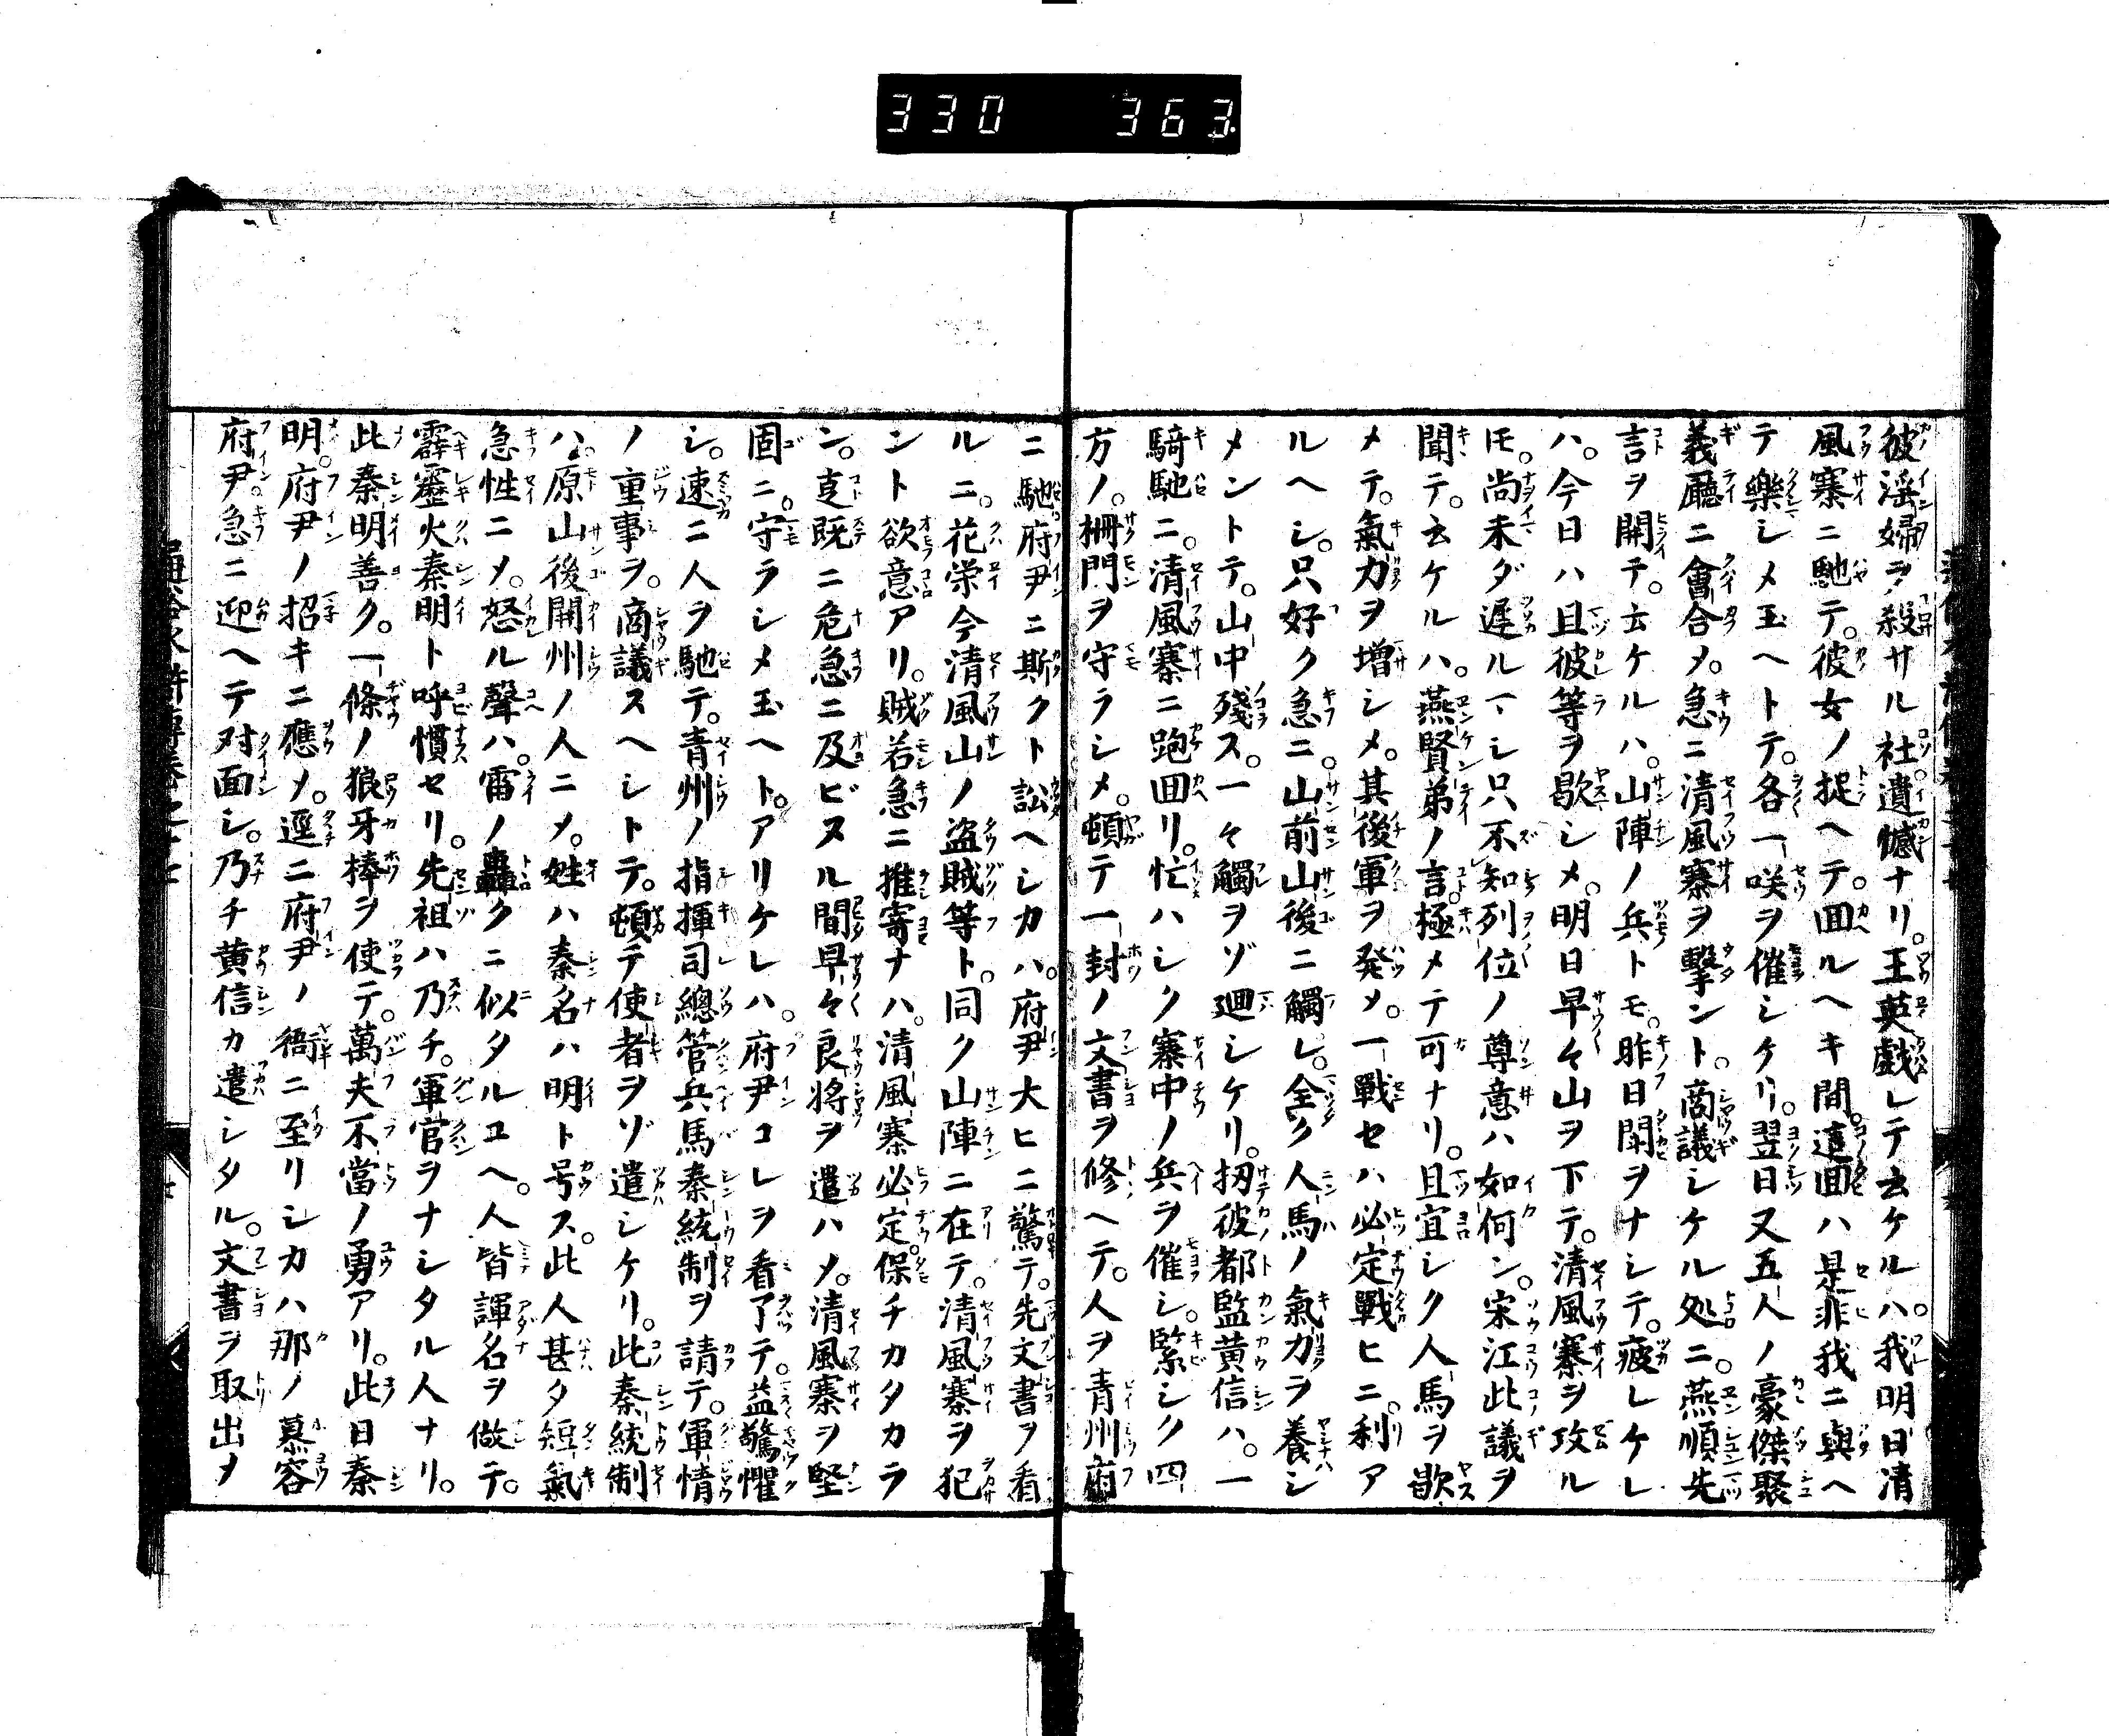 330 363
彼淫婦ヲ殺サル社遺憾ナリ。王英戯レテ云ケルハ。我明日清
風寨ニ馳テ。彼女ノ捉ヘテ。囬ルヘキ間。這囬ハ是非我ニ與ヘ
テ樂シメ玉ヘトテ。各一咲ヲ催シケリ。翌日又五人ノ豪傑聚
義廳ニ會合メ。急ニ清風寨ヲ擊ント。商議シケル処ニ。燕順先
言ヲ開テ。云ケルハ。山陣ノ兵トモ。昨日鬧ヲナシテ。疲レケレ
ハ。今日ハ且彼等ヲ歇シメ。明日早々山ヲ下テ。清風寨ヲ攻ル
モ。尚未ダ遅ルヽシ只不知列位ノ尊意ハ如何ン。宋江此議ヲ
聞テ。云ケルハ。燕賢弟ノ言。極メテ可ナリ。且宜シク人馬ヲ歇
メテ。氣力ヲ増シメ。其後軍ヲ発メ。一戰セハ必定戰ヒニ利ア
ルヘシ。只好ク急ニ。山前山後ニ觸レ。全ク人馬ノ氣力ヲ養シ
メントテ。山中殘ス。一々觸ヲゾ廻シケリ。扨彼都監黄信ハ。一
騎馳ニ。清風寨ニ跑囬リ。忙ハシク寨中ノ兵ヲ催シ。緊シク四
方ノ。柵門ヲ守ラシメ。頓テ一封ノ文書ヲ修ヘテ。人ヲ青州府
ニ馳府尹ニ斯クト訟ヘシカハ。府尹大ヒニ驚テ。先文書ヲ看
ルニ。花栄今清風山ノ盗賊等ト。同ク山陣ニ在テ。清風寨ヲ犯
ント欲意アリ。賊若急ニ推寄ナハ。清風寨必定。保チカタカラ
ン。叓既ニ危急ニ及ビヌル間早々良将ヲ遣ハメ。清風寨ヲ堅
固ニ。守ラシメ玉ヘト。アリケレハ。府尹コレヲ看了テ。益驚懼
シ。速ニ人ヲ馳テ。青州ノ指揮司總管兵馬秦統制ヲ請テ。軍情
ノ重事ヲ。商議スヘシトテ。頓テ使者ヲゾ遣シケリ。此秦統制
ハ。原山後開州ノ人ニメ。姓ハ秦名ハ明ト号ス。此人甚タ短氣
急性ニメ。怒ル聲ハ。雷ノ轟クニ似タルユヘ。人皆諢名ヲ做テ。
霹靂火秦明ト呼慣セリ。先祖ハ乃チ。軍官ヲナシタル人ナリ。
此秦明善ク。一條ノ狼牙棒ヲ使テ。萬夫不當ノ勇アリ。此日秦
明。府尹ノ招キニ應メ。逕ニ府尹ノ衙ニ至リシカハ那ノ慕容
府尹。急ニ迎ヘテ対面シ。乃チ黄信カ遣シタル。文書ヲ取出メ